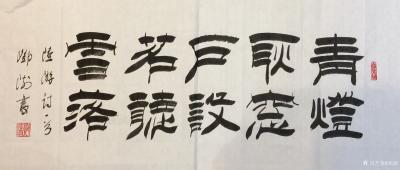 青燈
耿窗
戶設
茗聽
雪落
陸游詩
鄧書